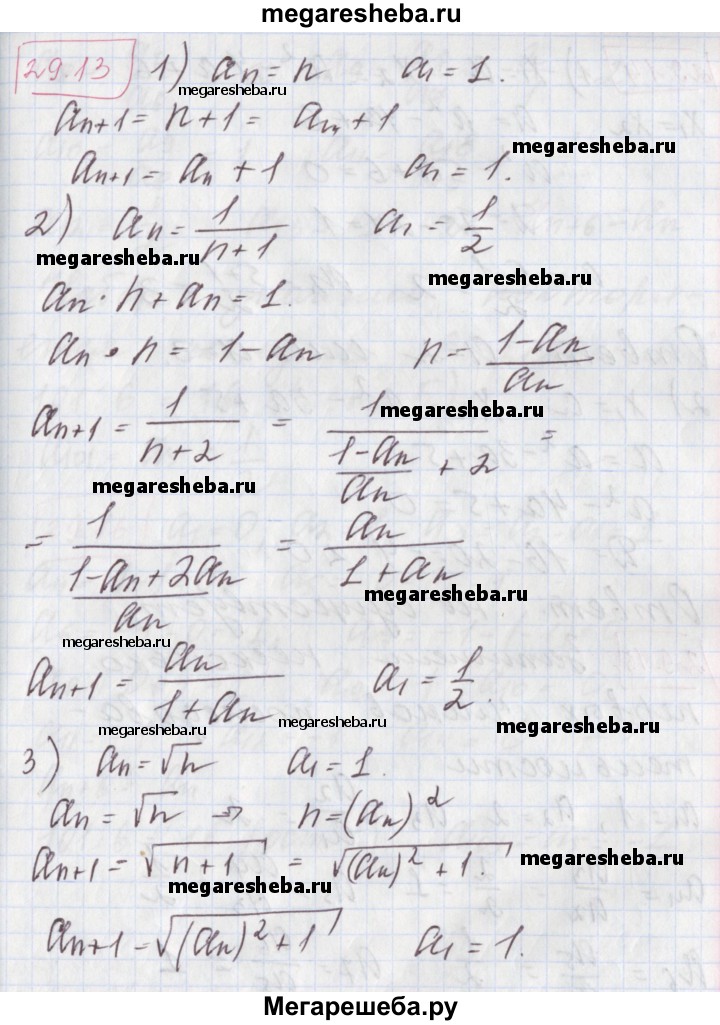 megaresheba.ru
29.13 1) an = n a1 = 1.
megaresheba.ru
an+1 = n+1 = an + 1
megaresheba.ru
an+1 = an + 1 a1 = 1.
2) an = 1/(n+1) a1 = 1/2
megaresheba.ru megaresheba.ru
an · n + an = 1.
an · n = 1 - an n = (1-an)/an
an+1 = 1/(n+2) = 1/((1-an)/an + 2) =
megaresheba.ru
megaresheba.ru
= 1/((1-an+2an)/an) = an/(1+an)
megaresheba.ru
megaresheba.ru
an+1 = an/(1+an) a1 = 1/2.
megaresheba.ru
megaresheba.ru
3) an = √n a1 = 1.
megaresheba.ru
an = √n ⇒ n = (an)²
an+1 = √(n+1) = √((an)² + 1)
megaresheba.ru
megaresheba.ru
an+1 = √((an)² + 1) a1 = 1.
Мегарешеба.ру